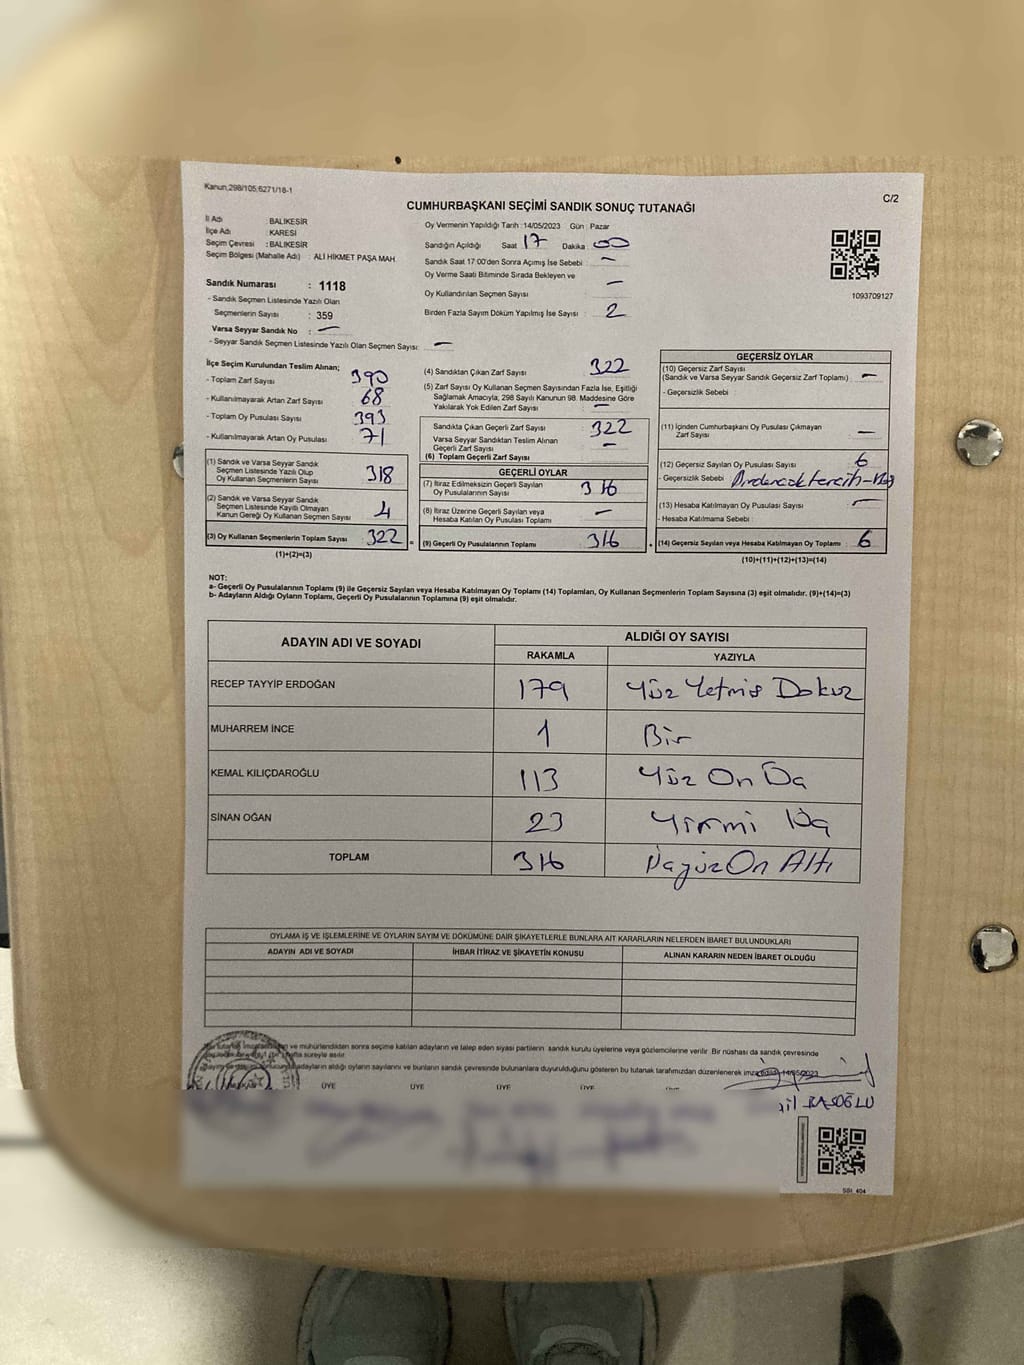 Kanun,298/105;6271/18-1
C/2
CUMHURBAŞKANI SEÇİMİ SANDIK SONUÇ TUTANAĞI
İl Adı : BALIKESİR
İlçe Adı : KARESİ
Seçim Çevresi : BALIKESİR
Seçim Bölgesi (Mahalle Adı) : ALİ HİKMET PAŞA MAH
Oy Vermenin Yapıldığı Tarih :14/05/2023 Gün : Pazar
Sandığın Açıldığı Saat 17 Dakika 00
Sandık Saat 17:00'den Sonra Açımış İse Sebebi : —
Oy Verme Saati Bitiminde Sırada Bekleyen ve
Oy Kullandırılan Seçmen Sayısı —
Birden Fazla Sayım Döküm Yapılmış İse Sayısı : 2
1093709127
Sandık Numarası : 1118
- Sandık Seçmen Listesinde Yazılı Olan
Seçmenlerin Sayısı : 359
Varsa Seyyar Sandık No : —
- Seyyar Sandık Seçmen Listesinde Yazılı Olan Seçmen Sayısı: —
İlçe Seçim Kurulundan Teslim Alınan;
- Toplam Zarf Sayısı : 390
- Kullanılmayarak Artan Zarf Sayısı : 68
- Toplam Oy Pusulası Sayısı : 393
- Kullanılmayarak Artan Oy Pusulası : 71
(1) Sandık ve Varsa Seyyar Sandık
Seçmen Listesinde Yazılı Olup
Oy Kullanan Seçmenlerin Sayısı : 318
(2) Sandık ve Varsa Seyyar Sandık
Seçmen Listesinde Kayıtlı Olmayan
Kanun Gereği Oy Kullanan Seçmen Sayısı : 4
(3) Oy Kullanan Seçmenlerin Toplam Sayısı : 322
(1)+(2)=(3)
(4) Sandıktan Çıkan Zarf Sayısı : 322
(5) Zarf Sayısı Oy Kullanan Seçmen Sayısından Fazla İse, Eşitliği
Sağlamak Amacıyla, 298 Sayılı Kanunun 98. Maddesine Göre
Yakılarak Yok Edilen Zarf Sayısı : —
Sandıkta Çıkan Geçerli Zarf Sayısı : 322
Varsa Seyyar Sandıktan Teslim Alınan
Geçerli Zarf Sayısı : —
(6) Toplam Geçerli Zarf Sayısı
GEÇERLİ OYLAR
(7) İtiraz Edilmeksizin Geçerli Sayılan
Oy Pusulalarının Sayısı : 316
(8) İtiraz Üzerine Geçerli Sayılan veya
Hesaba Katılan Oy Pusulası Toplamı : —
(9) Geçerli Oy Pusulalarının Toplamı : 316
GEÇERSİZ OYLAR
(10) Geçersiz Zarf Sayısı
(Sandık ve Varsa Seyyar Sandık Geçersiz Zarf Toplamı) : —
- Geçersizlik Sebebi :
(11) İçinden Cumhurbaşkanı Oy Pusulası Çıkmayan
Zarf Sayısı : —
(12) Geçersiz Sayılan Oy Pusulası Sayısı : 6
- Geçersizlik Sebebi :
(13) Hesaba Katılmayan Oy Pusulası Sayısı : —
- Hesaba Katılmama Sebebi :
(14) Geçersiz Sayılan veya Hesaba Katılmayan Oy Toplamı : 6
(10)+(11)+(12)+(13)=(14)
NOT:
a- Geçerli Oy Pusulalarının Toplamı (9) ile Geçersiz Sayılan veya Hesaba Katılmayan Oy Toplamı (14) Toplamları, Oy Kullanan Seçmenlerin Toplam Sayısına (3) eşit olmalıdır. (9)+(14)=(3)
b- Adayların Aldığı Oyların Toplamı, Geçerli Oy Pusulalarının Toplamına (9) eşit olmalıdır.
ADAYIN ADI VE SOYADI ALDIĞI OY SAYISI
RAKAMLA YAZIYLA
RECEP TAYYİP ERDOĞAN 179 Yüz Yetmiş Dokuz
MUHARREM İNCE 1 Bir
KEMAL KILIÇDAROĞLU 113 Yüz On Üç
SİNAN OĞAN 23 Yirmi Üç
TOPLAM 316 Üçyüz On Altı
OYLAMA İŞ VE İŞLEMLERİNE VE OYLARIN SAYIM VE DÖKÜMÜNE DAİR ŞİKAYETLERLE BUNLARA AİT KARARLARIN NELERDEN İBARET BULUNDUKLARI
ADAYIN ADI VE SOYADI İHBAR İTİRAZ VE ŞİKAYETİN KONUSU ALINAN KARARIN NEDEN İBARET OLDUĞU
ve mühürlendikten sonra seçime katılan adayların ve talep eden siyasi partilerin sandık kurulu üyelerine veya gözlemcilerine verilir. Bir nüshası da sandık çevresinde
süreyle asılır.
adayların aldığı oyların sayılarını ve bunların sandık çevresinde bulunanlara duyurulduğunu gösteren bu tutanak tarafımızdan düzenlenerek 14/05/2023
ÜYE ÜYE ÜYE ÜYE
BAŞOĞLU